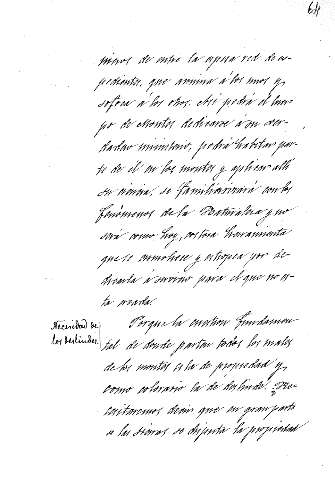 64
mieros de entre la espesa red de es-
pedientes, que arruina á los unos y
sofoca á los otros. Así podrá el Cuer-
po de Montes dedicarse á su ver-
dadero ministerio, podrá habitar par-
te de él en los montes y aplicar allí
su ciencia, se familiarizará con los
fenómenos de la Naturaleza y no
será como hoy, costosa herramienta
que se enmohece y estropea por de-
dicarla á servicio para el que no es-
tá creada.
Necesidad de
los deslindes.
Porque la cuestion fundamen-
tal de donde parten todos los males
de los montes es la de propiedad y,
como colorario la de deslinde. ¿Ne-
cesitaremos decir que en gran parte
de las sierras se disputa la propiedad